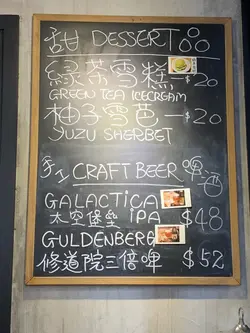 甜 DESSERT 品
綠茶雪糕 $20
GREEN TEA ICECREAM
柚子雪芭 $20
YUZU SHERBET
手工 CRAFT BEER 啤酒
GALACTICA
太空堡壘 IPA $48
GULDENBERG
修道院三倍啤 $52